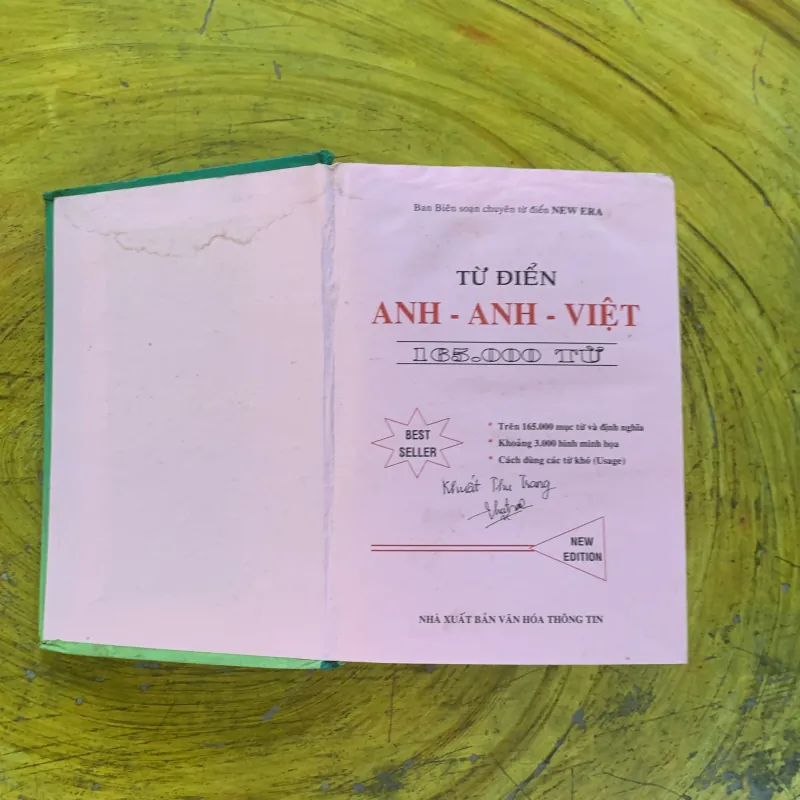 Ban Biên soạn chuyên từ điển NEW ERA
TỪ ĐIỂN
ANH - ANH - VIỆT
165.000 TỪ
BEST
SELLER
* Trên 165.000 mục từ và định nghĩa
* Khoảng 3.000 hình minh họa
* Cách dùng các từ khó (Usage)
Khuất Thu Trang
NEW
EDITION
NHÀ XUẤT BẢN VĂN HÓA THÔNG TIN